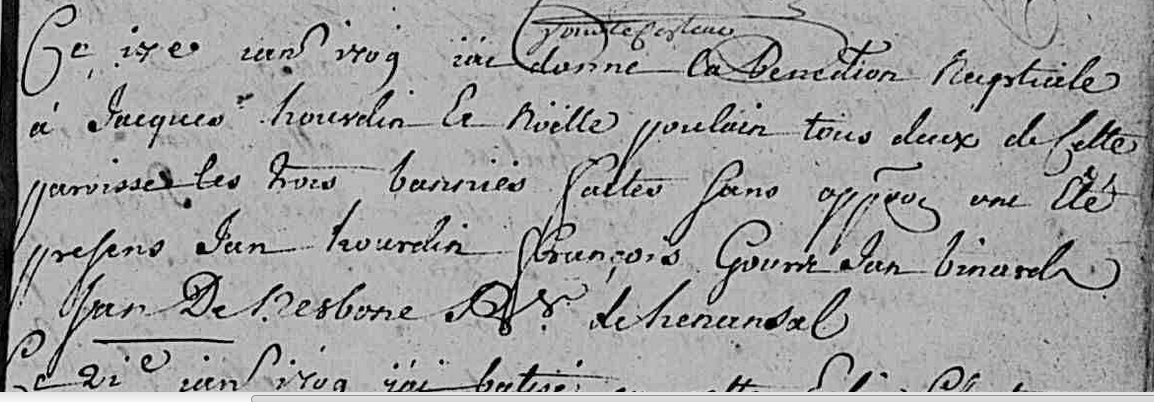 Ce 17e janr 1709 iai donne la Benediction Nuptiale
a Jacques hourdin Et Noelle poulain tous deux de Cette
paroisse les trois bannies faites sans oppon ont Eté
presens Jan hourdin François Gouret Jan binard
Jan De Kerbone Rr de henansal
Ce 21e janr 1709 iai batisé